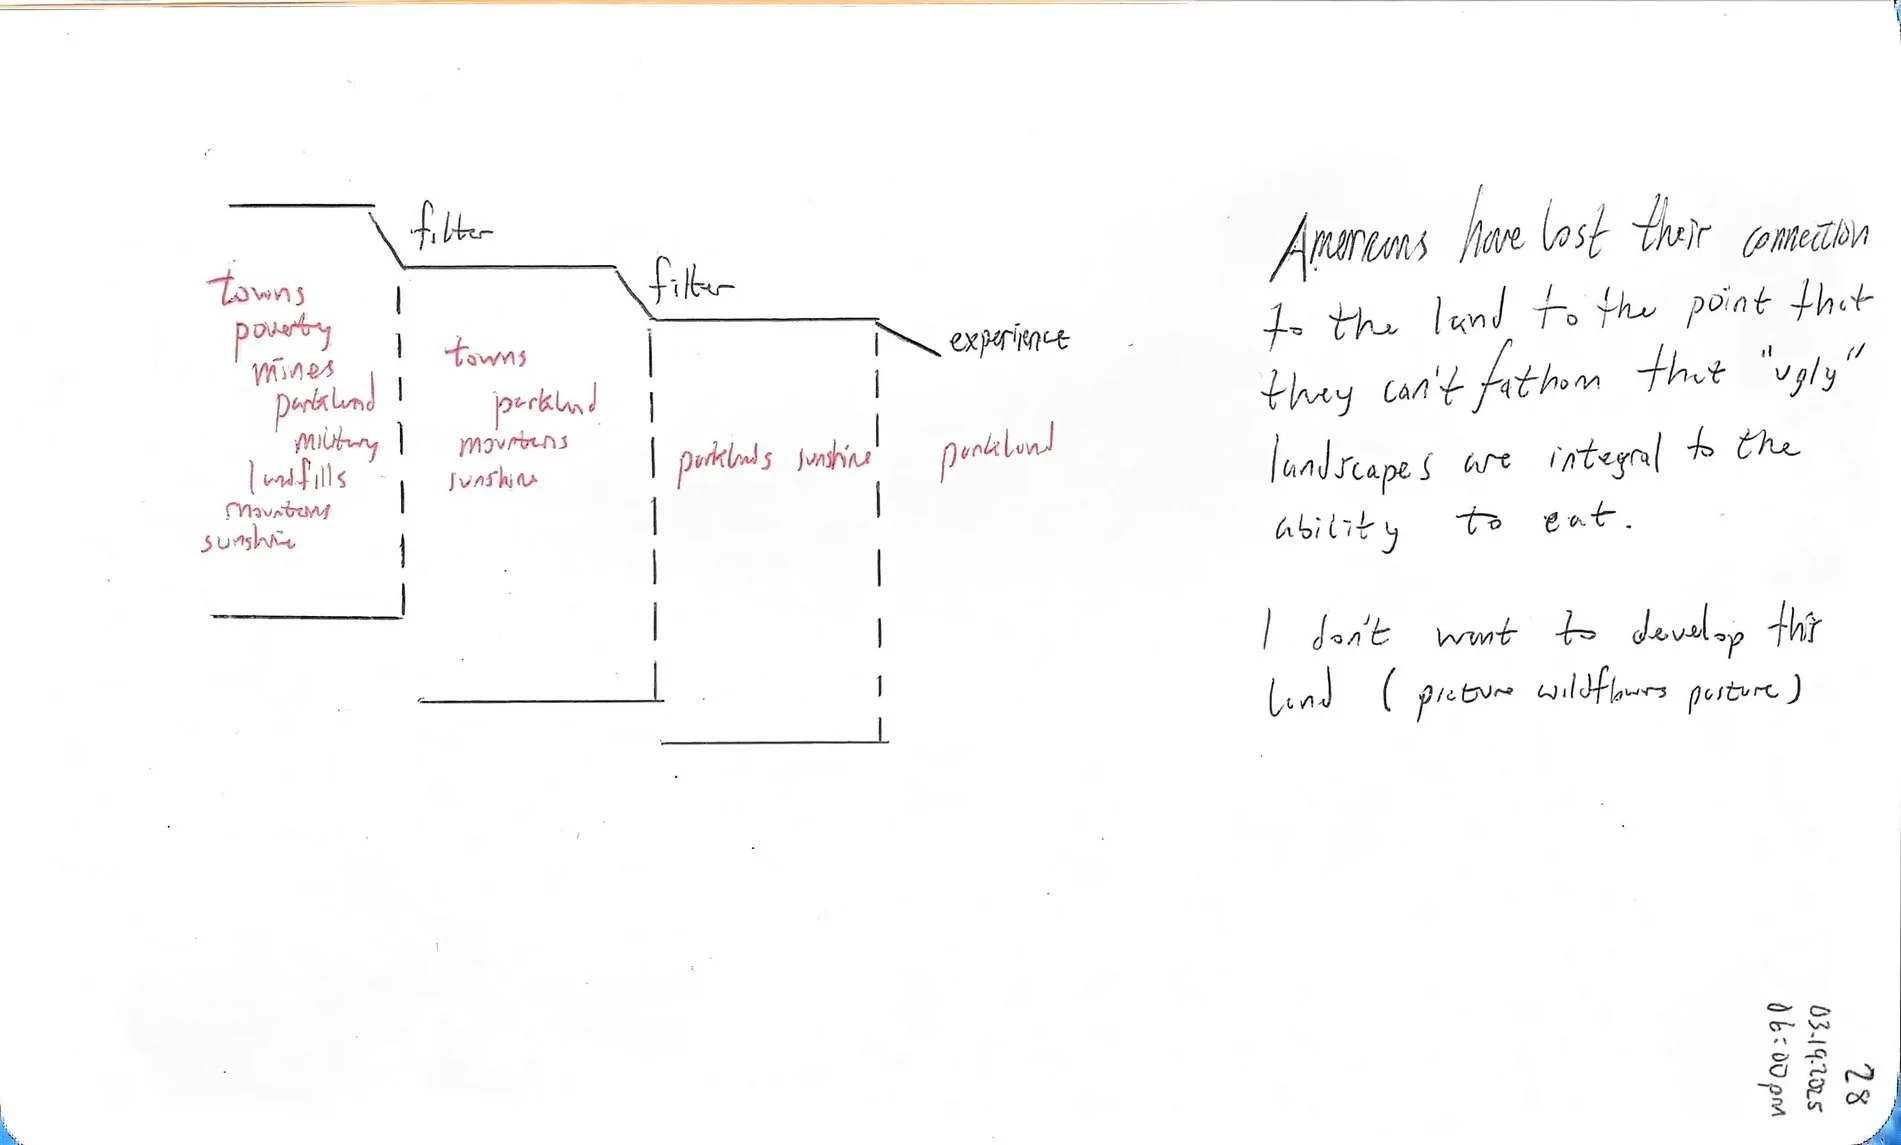 filter
towns
poverty
mines
parkland
military
landfills
mountains
sunshine
filter
towns
parkland
mountains
sunshine
experience
parklands sunshine
parkland
Americans have lost their connection
to the land to the point that
they can't fathom that "ugly"
landscapes are integral to the
ability to eat.
I don't want to develop this
land (picture wildflowers pasture)
28
03.19.2025
06:00pm